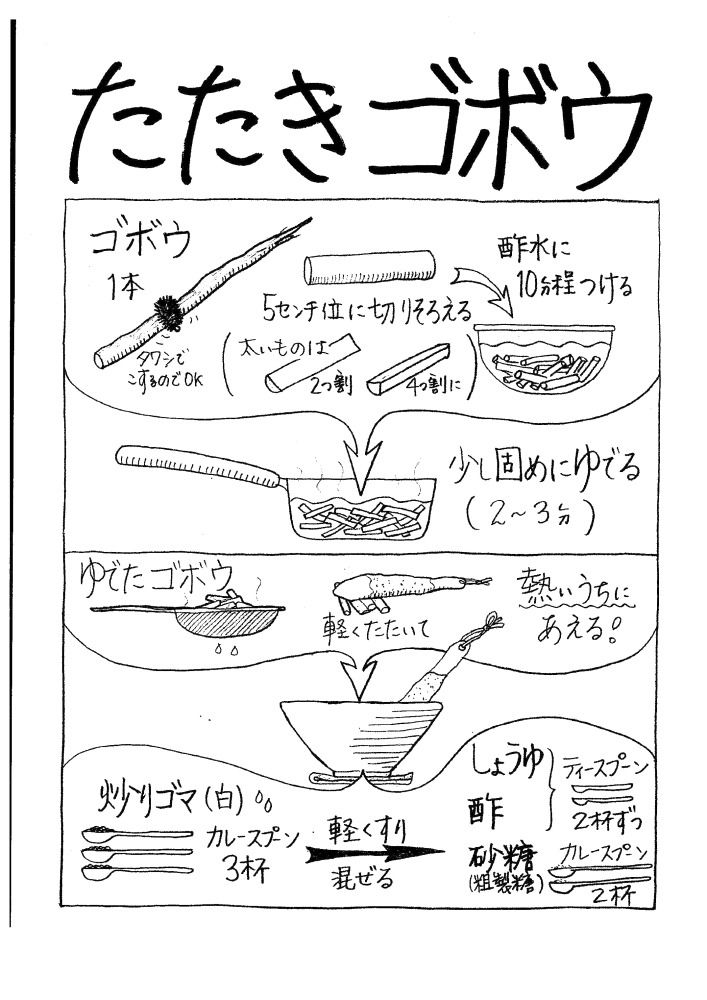 たたきゴボウ
ゴボウ
1本
タワシで
こするのでOK
5センチ位に切りそろえる
(太いものは
2つ割
4つ割に)
酢水に
10分程つける
少し固めにゆでる
(2～3分)
ゆでたゴボウ
軽くたたいて
熱いうちに
あえる。
炒りゴマ(白)
カレースプーン
3杯
軽くすり
混ぜる
しょうゆ
酢
ティースプーン
2杯ずつ
砂糖
(粗製糖)
カレースプーン
2杯